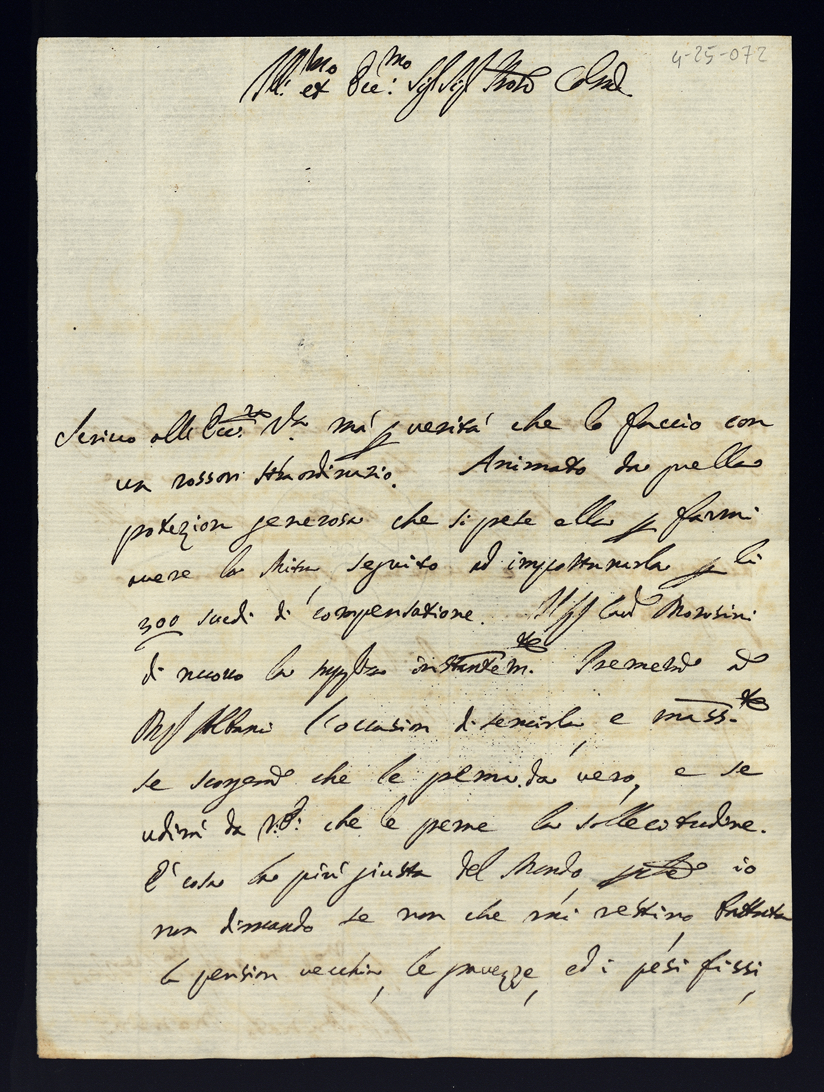 4-25-072
Ill.mo et Ecc.mo Sig.r Sig.r Prone Colmo
Scrivo all'Ecc. Va. mà p verità che lo faccio con
un rossor straordinario. Animato da quella
protezion generosa che si prese ella p farmi
avere la Mitra, seguito ad importunarla p li
300 scudi di compensatione. Cav. Morosini
di nuovo la supplico instantem.te Premerà a
Albani l'occasion di servirla, e mass.te
se scorgerà che le prema da vero, e se
udirà da che le preme la sollecitudine.
È cosa la più giusta del Mondo, io
non dimando se non che mi restino,
la pension vecchia, le gravezze, ed i pesi fissi,